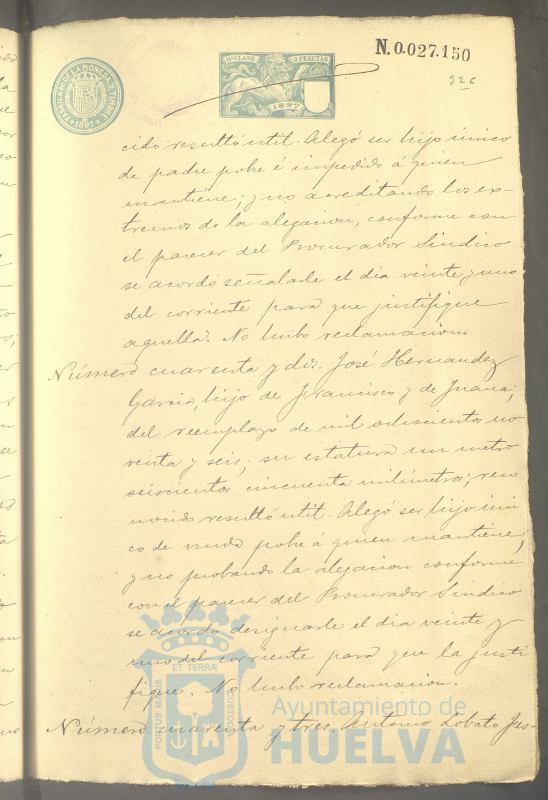 N.0.027.150
326
11ª CLASE 2 PESETAS
1897
FABRICA N. DE LA MONEDA Y TIMBRE
1897
cido resultó util. Alegó ser hijo único
de padre pobre é impedido á quien
mantiene; y no acreditando los ex-
tremos de la alegacion, conforme con
el parecer del Procurador Sindico
se acordó señalarle el dia veinte y uno
del corriente para que justifique
aquella. No hubo reclamacion.
Número cuarenta y dos. José Hernandez
Garcia, hijo de Francisco y de Juana;
del reemplazo de mil ochocientos no
venta y seis; su estatura un metro
seiscientos cincuenta milimetros; reco
nocido resultó util. Alegó ser hijo úni
co de viuda pobre á quien mantiene,
y no probando la alegacion conforme
con el parecer del Procurador Sindico
se acordó designarle el dia veinte y
uno del corriente para que la justi
fique. No hubo reclamacion.
Número cuarenta y tres. Antonio Lobato
PORTUS MARIS ET TERRAE CUSTODIA
Ayuntamiento de
HUELVA